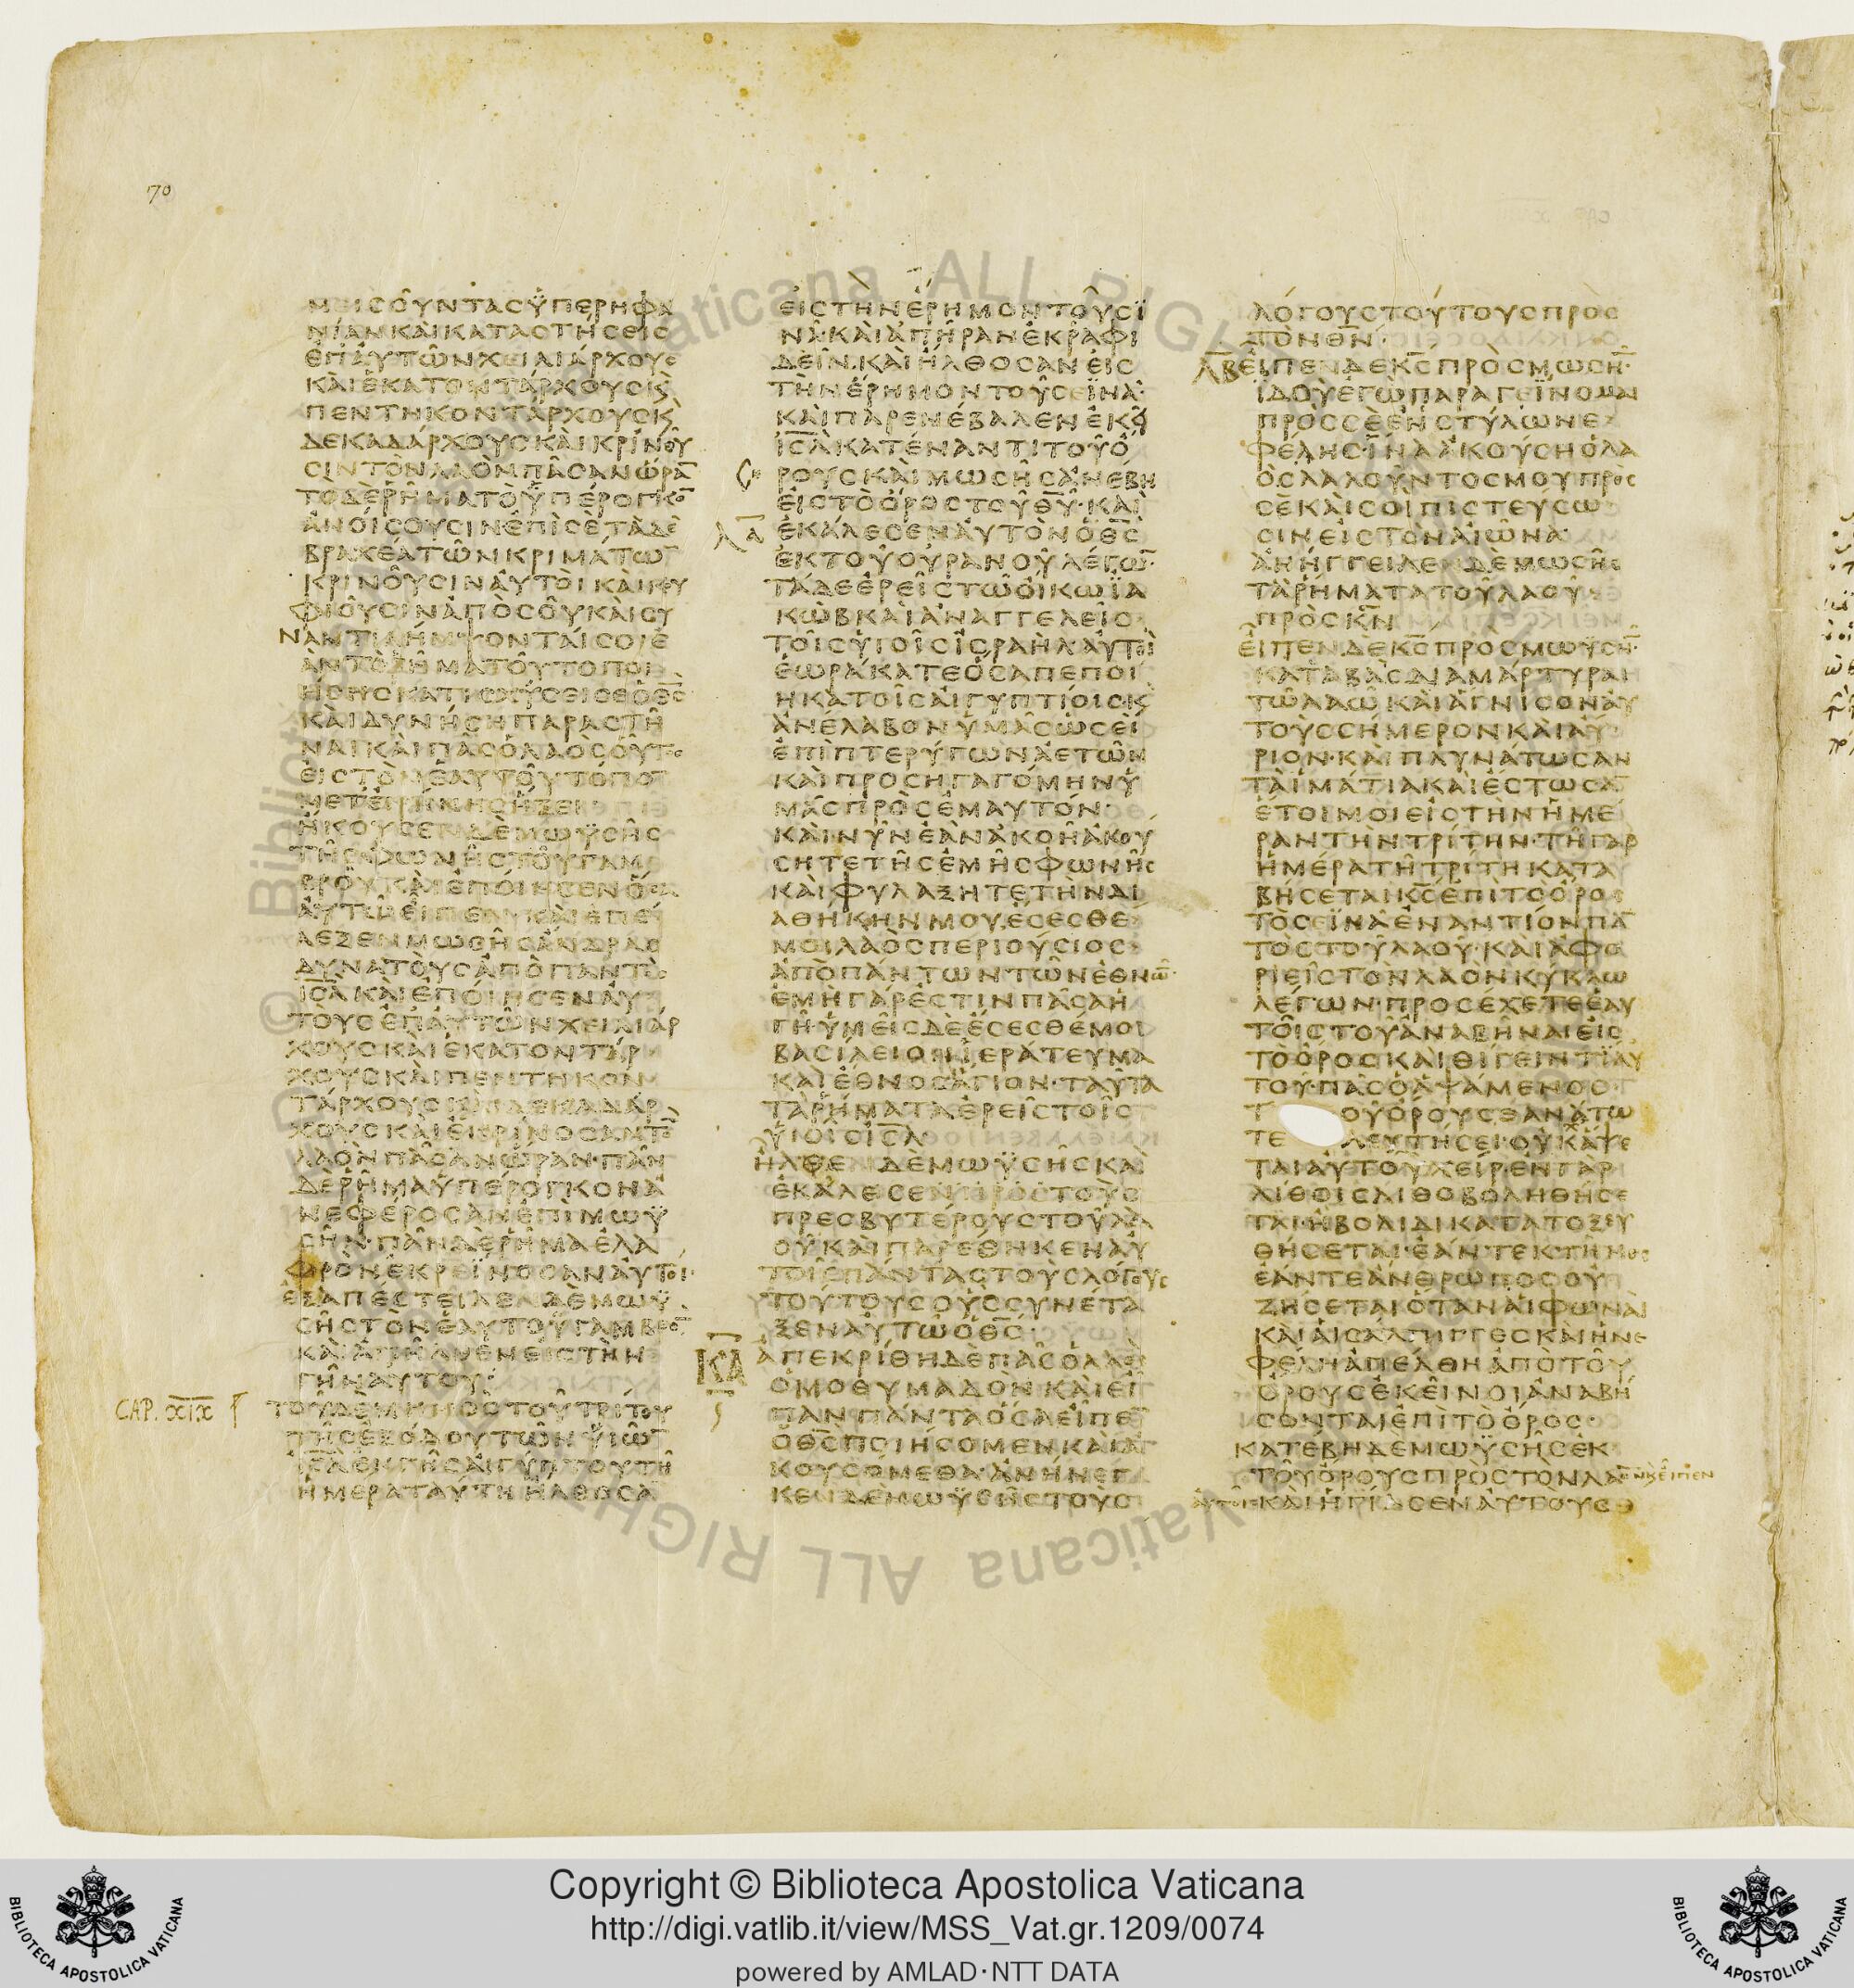 70
ΜΙΣΟΥΝΤΑΣ ΥΠΕΡΗΦΑ
ΝΙΑΝ ΚΑΙ ΚΑΤΑΣΤΗΣΕΙΣ
ΕΠ ΑΥΤΩΝ ΧΕΙΛΙΑΡΧΟΥΣ
ΚΑΙ ΕΚΑΤΟΝΤΑΡΧΟΥΣ Κ
ΠΕΝΤΗΚΟΝΤΑΡΧΟΥΣ Κ
ΔΕΚΑΔΑΡΧΟΥΣ ΚΑΙ ΚΡΙΝΟΥ
ΣΙΝ ΤΟΝ ΛΑΟΝ ΠΑΣΑΝ ΩΡΑ̅
ΤΟ ΔΕ ΡΗΜΑ ΤΟ ΫΠΕΡΟΓΚΟ̅
ΑΝΟΙΣΟΥΣΙΝ ΕΠΙ ΣΕ ΤΑ ΔΕ
ΒΡΑΧΕΑ ΤΩΝ ΚΡΙΜΑΤΩ̅
ΚΡΙΝΟΥΣΙΝ ΑΥΤΟΙ ΚΑΙ ΚΟΥ
ΦΙΟΥΣΙΝ ΑΠΟ ΣΟΥ ΚΑΙ ΣΥ
ΝΑΝΤΙΛΗΜΨΟΝΤΑΙ ΣΟΙ Ε
ΑΝ ΤΟ ΡΗΜΑ ΤΟΥΤΟ ΠΟΙ
ΗΣΗΣ ΚΑΤΙΣΧΥΣΕΙ ΣΕ Ο Θ̅Σ̅
ΚΑΙ ΔΥΝΗΣΗ ΠΑΡΑΣΤΗ
ΝΑΙ ΚΑΙ ΠΑΣ Ο ΛΑΟΣ ΟΥΤΟΣ
ΕΙΣ ΤΟΝ ΕΑΥΤΟΥ ΤΟΠΟ̅
ΜΕΤ ΕΙΡΗΝΗΣ ΗΞΕΙ
ΗΚΟΥΣΕΝ ΔΕ ΜΩΫΣΗΣ
ΤΗΣ ΦΩΝΗΣ ΤΟΥ ΓΑΜ
ΒΡΟΥ ΚΑΙ ΕΠΟΙΗΣΕΝ ΟΣΑ
ΑΥΤΩ ΕΙΠΕΝ ΚΑΙ ΕΠΕ
ΛΕΞΕΝ ΜΩΣΗΣ ΑΝΔΡΑΣ
ΔΥΝΑΤΟΥΣ ΑΠΟ ΠΑΝΤΟΣ
Ι̅Σ̅Λ̅ ΚΑΙ ΕΠΟΙΗΣΕΝ ΑΥ
ΤΟΥΣ ΕΠ ΑΥΤΩΝ ΧΕΙΛΙΑΡ
ΧΟΥΣ ΚΑΙ ΕΚΑΤΟΝΤΑΡ
ΧΟΥΣ ΚΑΙ ΠΕΝΤΗΚΟΝ
ΤΑΡΧΟΥΣ ΚΑΙ ΔΕΚΑΔΑΡ
ΧΟΥΣ ΚΑΙ ΕΚΡΙΝΟΣΑΝ ΤΟ̅
ΛΑΟΝ ΠΑΣΑΝ ΩΡΑΝ· ΠΑΝ
ΔΕ ΡΗΜΑ ΥΠΕΡΟΓΚΟΝ Α
ΝΕΦΕΡΟΣΑΝ ΕΠΙ ΜΩΫ
ΣΗΝ· ΠΑΝ ΔΕ ΡΗΜΑ ΕΛΑ
ΦΡΟΝ ΕΚΡΕΙΝΟΣΑΝ ΑΥΤΟΙ·
ΕΞΑΠΕΣΤΕΙΛΕΝ ΔΕ ΜΩΫ
ΣΗΣ ΤΟΝ ΕΑΥΤΟΥ ΓΑΜΒΡΟ̅
ΚΑΙ ΑΠΗΛΘΕΝ ΕΙΣ ΤΗΝ
ΓΗΝ ΑΥΤΟΥ
CAP. XIX ΤΟΥ ΔΕ ΜΗΝΟΣ ΤΟΥ ΤΡΙΤΟΥ
ΤΗΣ ΕΞΟΔΟΥ ΤΩΝ ΫΙΩ̅
Ι̅Σ̅Λ̅ ΕΚ ΓΗΣ ΑΙΓΥΠΤΟΥ ΤΗ
ΗΜΕΡΑ ΤΑΥΤΗ ΗΛΘΟΣΑ̅
ΕΙΣ ΤΗΝ ΕΡΗΜΟΝ ΤΟΥ ΣΪ
ΝΑ· ΚΑΙ ΑΠΗΡΑΝ ΕΚ ΡΑΦΙ
ΔΕΙΝ· ΚΑΙ ΗΛΘΟΣΑΝ ΕΙΣ
ΤΗΝ ΕΡΗΜΟΝ ΤΟΥ ΣΕΪΝΑ·
ΚΑΙ ΠΑΡΕΝΕΒΑΛΕΝ ΕΚΕΙ
Ι̅Σ̅Λ̅ ΚΑΤΕΝΑΝΤΙ ΤΟΥ Ο
ΡΟΥΣ ΚΑΙ ΜΩΣΗΣ ΑΝΕΒΗ
ΕΙΣ ΤΟ ΟΡΟΣ ΤΟΥ Θ̅Υ̅· ΚΑΙ
Λ̅Α̅ ΕΚΑΛΕΣΕΝ ΑΥΤΟΝ Ο Θ̅Σ̅
ΕΚ ΤΟΥ ΟΥΡΑΝΟΥ ΛΕΓΩ̅·
ΤΑΔΕ ΕΡΕΙΣ ΤΩ ΟΙΚΩ ΪΑ
ΚΩΒ ΚΑΙ ΑΝΑΓΓΕΛΕΙΣ
ΤΟΙΣ ΥΙΟΙΣ ΙΣΡΑΗΛ ΑΥΤΟΙ
ΕΩΡΑΚΑΤΕ ΟΣΑ ΠΕΠΟΙ
ΗΚΑ ΤΟΙΣ ΑΙΓΥΠΤΙΟΙΣ Κ
ΑΝΕΛΑΒΟΝ ΥΜΑΣ ΩΣΕΙ
ΕΠΙ ΠΤΕΡΥΓΩΝ ΑΕΤΩΝ
ΚΑΙ ΠΡΟΣΗΓΑΓΟΜΗΝ Υ
ΜΑΣ ΠΡΟΣ ΕΜΑΥΤΟΝ·
ΚΑΙ ΝΥΝ ΕΑΝ ΑΚΟΗ ΑΚΟΥ
ΣΗΤΕ ΤΗΣ ΕΜΗΣ ΦΩΝΗΣ
ΚΑΙ ΦΥΛΑΞΗΤΕ ΤΗΝ ΔΙ
ΑΘΗΚΗΝ ΜΟΥ, ΕΣΕΣΘΕ
ΜΟΙ ΛΑΟΣ ΠΕΡΙΟΥΣΙΟΣ
ΑΠΟ ΠΑΝΤΩΝ ΤΩΝ ΕΘΝΩ̅·
ΕΜΗ ΓΑΡ ΕΣΤΙΝ ΠΑΣΑ Η
ΓΗ· ΥΜΕΙΣ ΔΕ ΕΣΕΣΘΕ ΜΟΙ
ΒΑΣΙΛΕΙΟΝ ΙΕΡΑΤΕΥΜΑ
ΚΑΙ ΕΘΝΟΣ ΑΓΙΟΝ· ΤΑΥΤΑ
ΤΑ ΡΗΜΑΤΑ ΕΡΕΙΣ ΤΟΙΣ
ΥΙΟΙΣ Ι̅Σ̅Λ̅
ΗΛΘΕΝ ΔΕ ΜΩΫΣΗΣ ΚΑΙ
ΕΚΑΛΕΣΕΝ ΤΟΥΣ
ΠΡΕΣΒΥΤΕΡΟΥΣ ΤΟΥ ΛΑ
ΟΥ ΚΑΙ ΠΑΡΕΘΗΚΕΝ ΑΥ
ΤΟΙΣ ΠΑΝΤΑΣ ΤΟΥΣ ΛΟΓΟΥΣ
ΤΟΥΤΟΥΣ ΟΥΣ ΣΥΝΕΤΑ
ΞΕΝ ΑΥΤΩ Ο Θ̅Σ̅·
ΚΑ ΑΠΕΚΡΙΘΗ ΔΕ ΠΑΣ Ο ΛΑΟΣ
ΟΜΟΘΥΜΑΔΟΝ ΚΑΙ ΕΙ
ΠΑΝ ΠΑΝΤΑ ΟΣΑ ΕΙΠΕ̅
Ο Θ̅Σ̅ ΠΟΙΗΣΟΜΕΝ ΚΑΙ Α
ΚΟΥΣΟΜΕΘΑ· ΑΝΗΝΕΓ
ΚΕΝ ΔΕ ΜΩΫΣΗΣ ΤΟΥΣ
ΛΟΓΟΥΣ ΤΟΥΤΟΥΣ ΠΡΟΣ
ΤΟΝ Θ̅Ν̅·
Λ̅Β̅ ΕΙΠΕΝ ΔΕ Κ̅Σ̅ ΠΡΟΣ ΜΩΣΗ̅·
ΪΔΟΥ ΕΓΩ ΠΑΡΑΓΕΙΝΟΜΑΙ
ΠΡΟΣ ΣΕ ΕΝ ΣΤΥΛΩ ΝΕ
ΦΕΛΗΣ· ΪΝΑ ΑΚΟΥΣΗ Ο ΛΑ
ΟΣ ΛΑΛΟΥΝΤΟΣ ΜΟΥ ΠΡΟΣ
ΣΕ ΚΑΙ ΣΟΙ ΠΙΣΤΕΥΣΩ
ΣΙΝ ΕΙΣ ΤΟΝ ΑΙΩΝΑ·
ΑΝΗΓΓΕΙΛΕΝ ΔΕ ΜΩΣΗΣ
ΤΑ ΡΗΜΑΤΑ ΤΟΥ ΛΑΟΥ
ΠΡΟΣ Κ̅Ν̅
ΕΙΠΕΝ ΔΕ Κ̅Σ̅ ΠΡΟΣ ΜΩΫΣΗ̅·
ΚΑΤΑΒΑΣ ΔΙΑΜΑΡΤΥΡΑΙ
ΤΩ ΛΑΩ ΚΑΙ ΑΓΝΙΣΟΝ ΑΥ
ΤΟΥΣ ΣΗΜΕΡΟΝ ΚΑΙ ΑΥ
ΡΙΟΝ· ΚΑΙ ΠΛΥΝΑΤΩΣΑΝ
ΤΑ ΙΜΑΤΙΑ ΚΑΙ ΕΣΤΩΣΑ̅
ΕΤΟΙΜΟΙ ΕΙΣ ΤΗΝ ΗΜΕ
ΡΑΝ ΤΗΝ ΤΡΙΤΗΝ· ΤΗ ΓΑΡ
ΗΜΕΡΑ ΤΗ ΤΡΙΤΗ ΚΑΤΑ
ΒΗΣΕΤΑΙ Κ̅Σ̅ ΕΠΙ ΤΟ ΟΡΟΣ
ΤΟ ΣΕΪΝΑ ΕΝΑΝΤΙΟΝ ΠΑ̅
ΤΟΣ ΤΟΥ ΛΑΟΥ· ΚΑΙ ΑΦΟ
ΡΙΕΙΣ ΤΟΝ ΛΑΟΝ ΚΥΚΛΩ
ΛΕΓΩΝ· ΠΡΟΣΕΧΕΤΕ ΕΑΥ
ΤΟΙΣ ΤΟΥ ΑΝΑΒΗΝΑΙ ΕΙΣ
ΤΟ ΟΡΟΣ ΚΑΙ ΘΙΓΕΙΝ ΤΙ ΑΥ
ΤΟΥ· ΠΑΣ Ο ΑΨΑΜΕΝΟΣ
Τ ΟΥ ΟΡΟΥΣ ΘΑΝΑΤΩ
ΤΕ ΛΕΥΤΗΣΕΙ· ΟΥΚ ΑΨΕ
ΤΑΙ ΑΥΤΟΥ ΧΕΙΡ· ΕΝ ΓΑΡ
ΛΙΘΟΙΣ ΛΙΘΟΒΟΛΗΘΗΣΕ
ΤΑΙ· Η ΒΟΛΙΔΙ ΚΑΤΑΤΟΞΕΥ
ΘΗΣΕΤΑΙ· ΕΑΝ ΤΕ ΚΤΗΝΟΣ
ΕΑΝ ΤΕ ΑΝΘΡΩΠΟΣ ΟΥ
ΖΗΣΕΤΑΙ ΟΤΑΝ ΑΙ ΦΩΝΑΙ
ΚΑΙ ΑΙ ΣΑΛΠΙΓΓΕΣ ΚΑΙ Η ΝΕ
ΦΕΛΗ ΑΠΕΛΘΗ ΑΠΟ ΤΟΥ
ΟΡΟΥΣ ΕΚΕΙΝΟΙ ΑΝΑΒΗ
ΣΟΝΤΑΙ ΕΠΙ ΤΟ ΟΡΟΣ·
ΚΑΤΕΒΗ ΔΕ ΜΩΫΣΗΣ ΕΚ
ΤΟΥ ΟΡΟΥΣ ΠΡΟΣ ΤΟΝ ΛΑΟΝ Κ ΕΙΠΕΝ
ΑΥΤΟΙΣ ΚΑΙ ΗΓΙΑΣΕΝ ΑΥΤΟΥΣ
Copyright © Biblioteca Apostolica Vaticana
http://digi.vatlib.it/view/MSS_Vat.gr.1209/0074
powered by AMLAD·NTT DATA
BIBLIOTECA APOSTOLICA VATICANA
BIBLIOTECA APOSTOLICA VATICANA